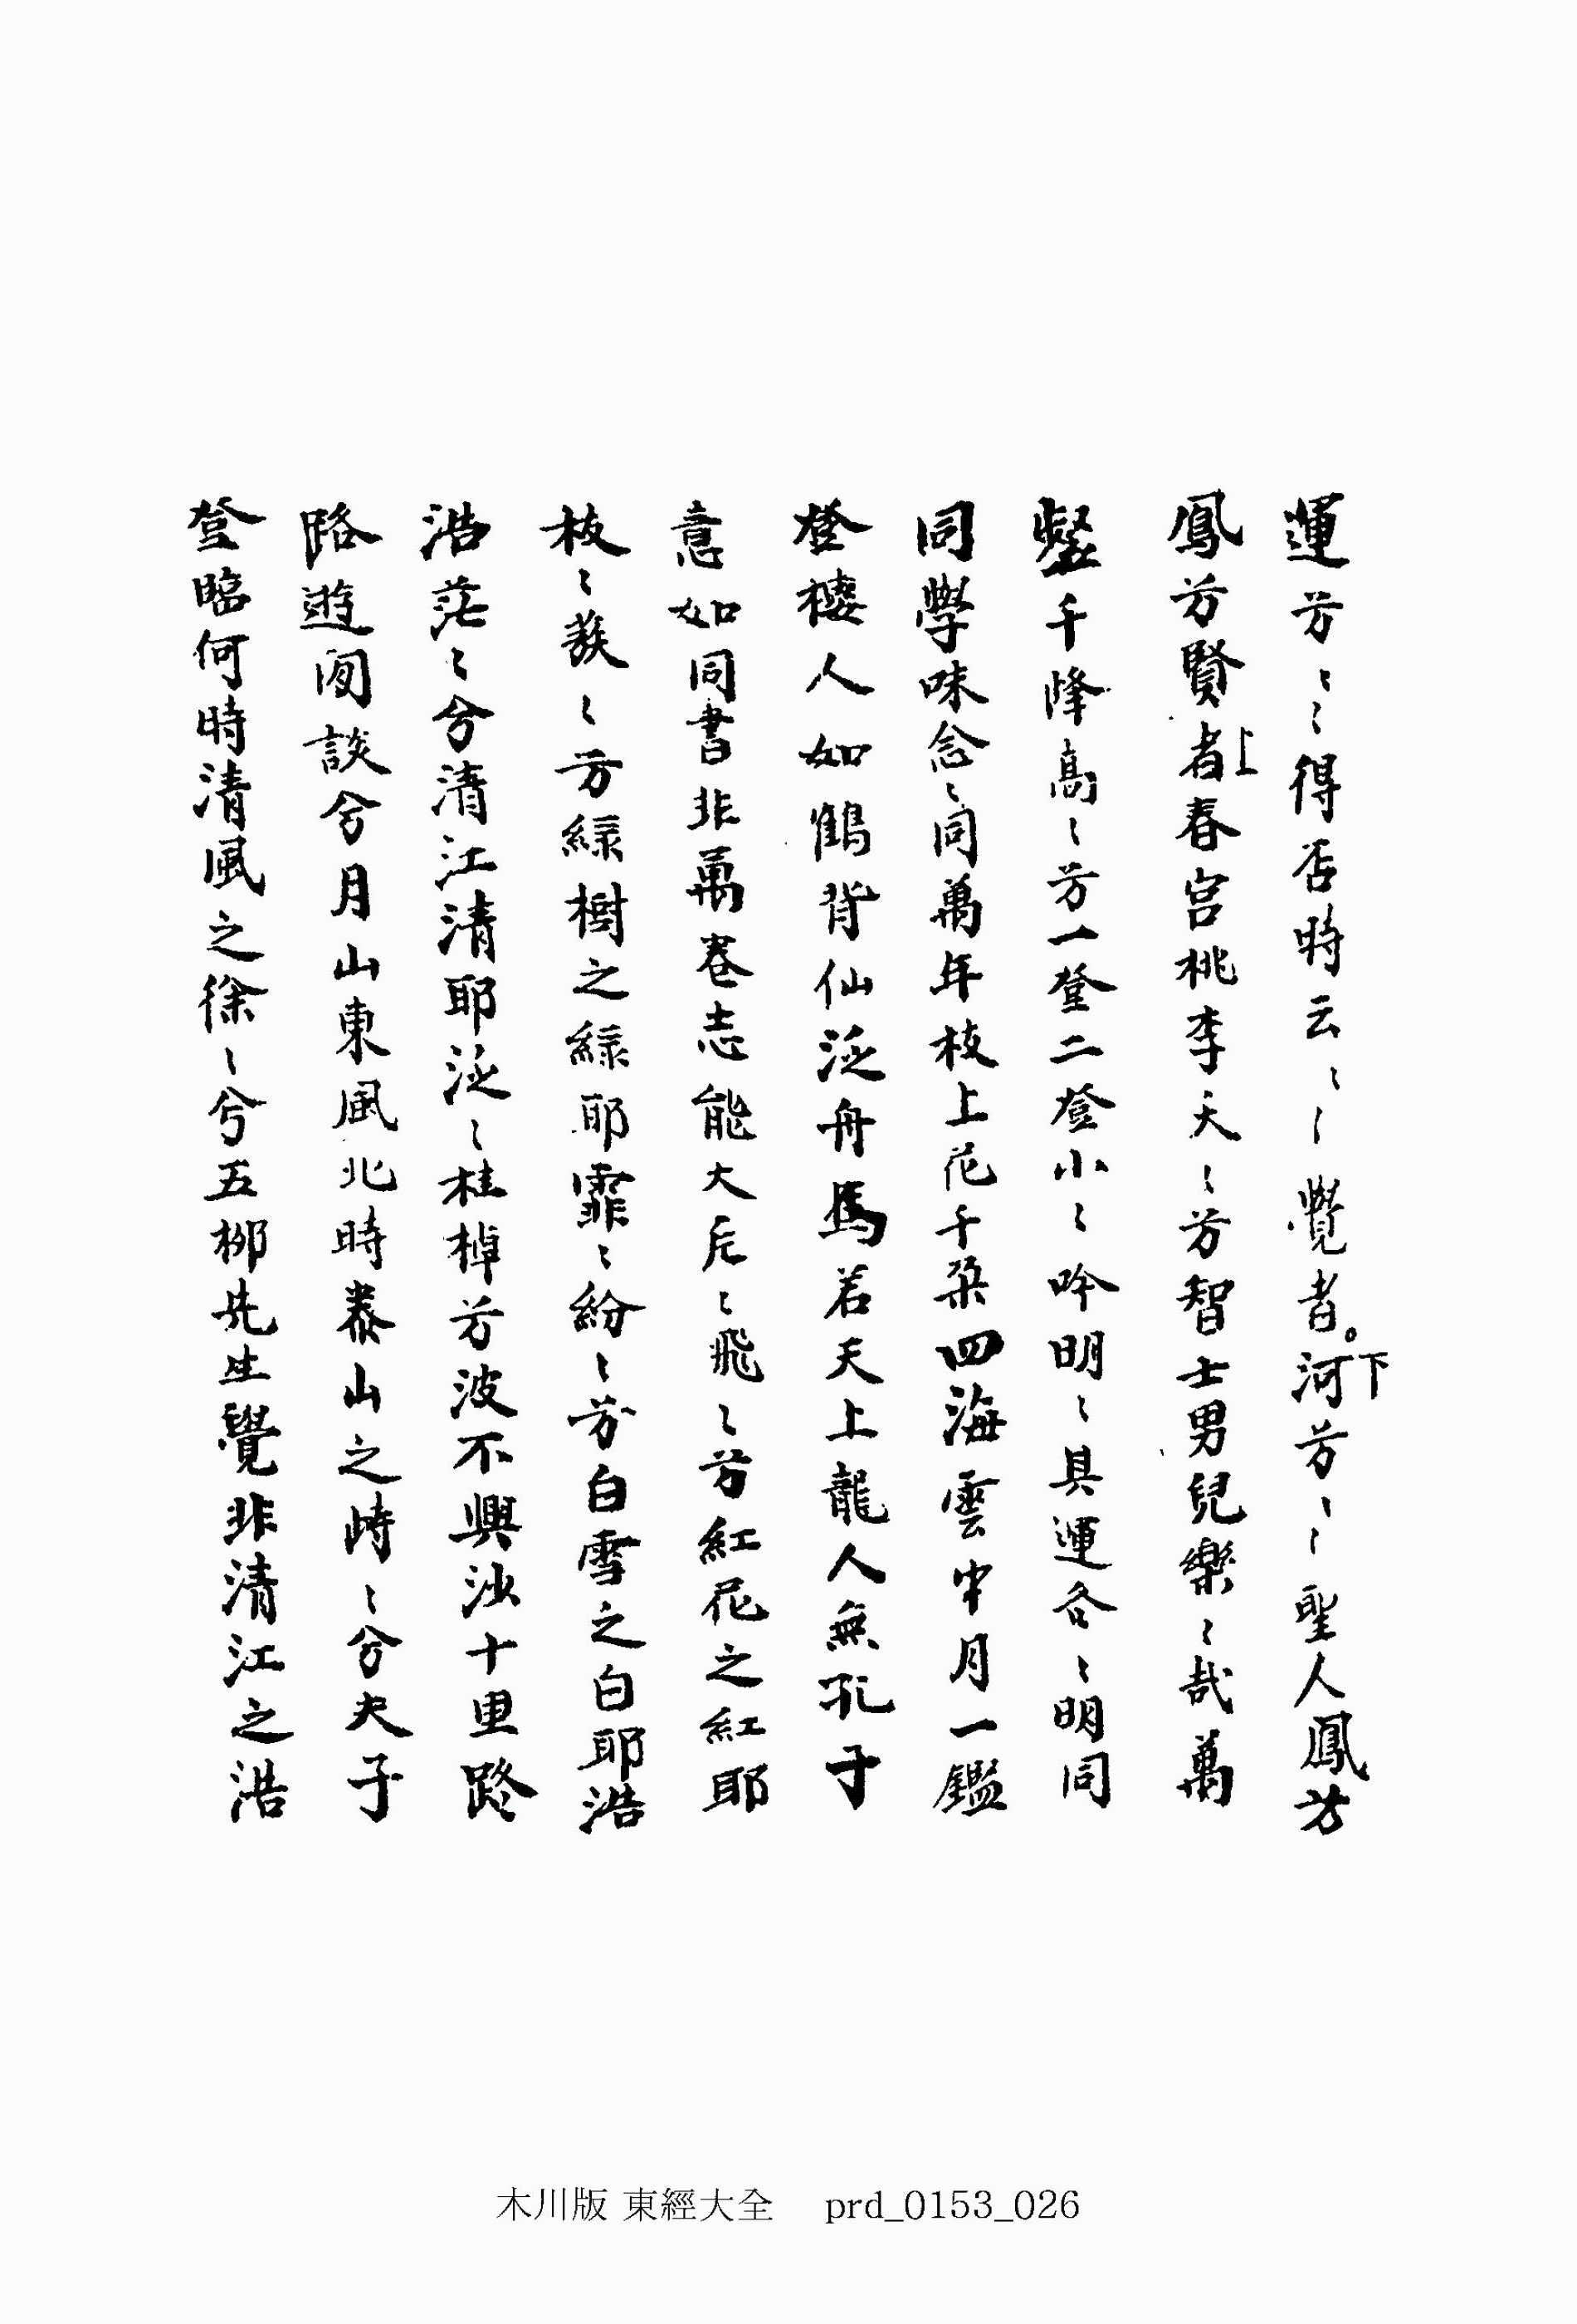 運兮〻〻得否時云〻〻覺者。河兮〻〻聖人鳳兮
下
鳳兮賢者春宮桃李夭〻兮智士男兒樂〻哉萬
上
壑千峰高〻兮一登二登小〻吟明〻其運各〻明同
同學味念〻同萬年枝上花千朶四海雲中月一鑑
登樓人如鶴背仙泛舟馬若天上龍人無孔子
意如同書非萬卷志能大片〻飛〻兮紅花之紅耶
枝〻發〻兮綠樹之綠耶霏〻紛〻兮白雪之白耶浩
浩茫〻兮清江清耶泛〻桂棹兮波不興沙十里路
路遊閒談兮月山東風北時泰山之峙〻兮夫子
登臨何時清風之徐〻兮五柳先生覺非清江之浩
木川版 東經大全 prd_0153_026